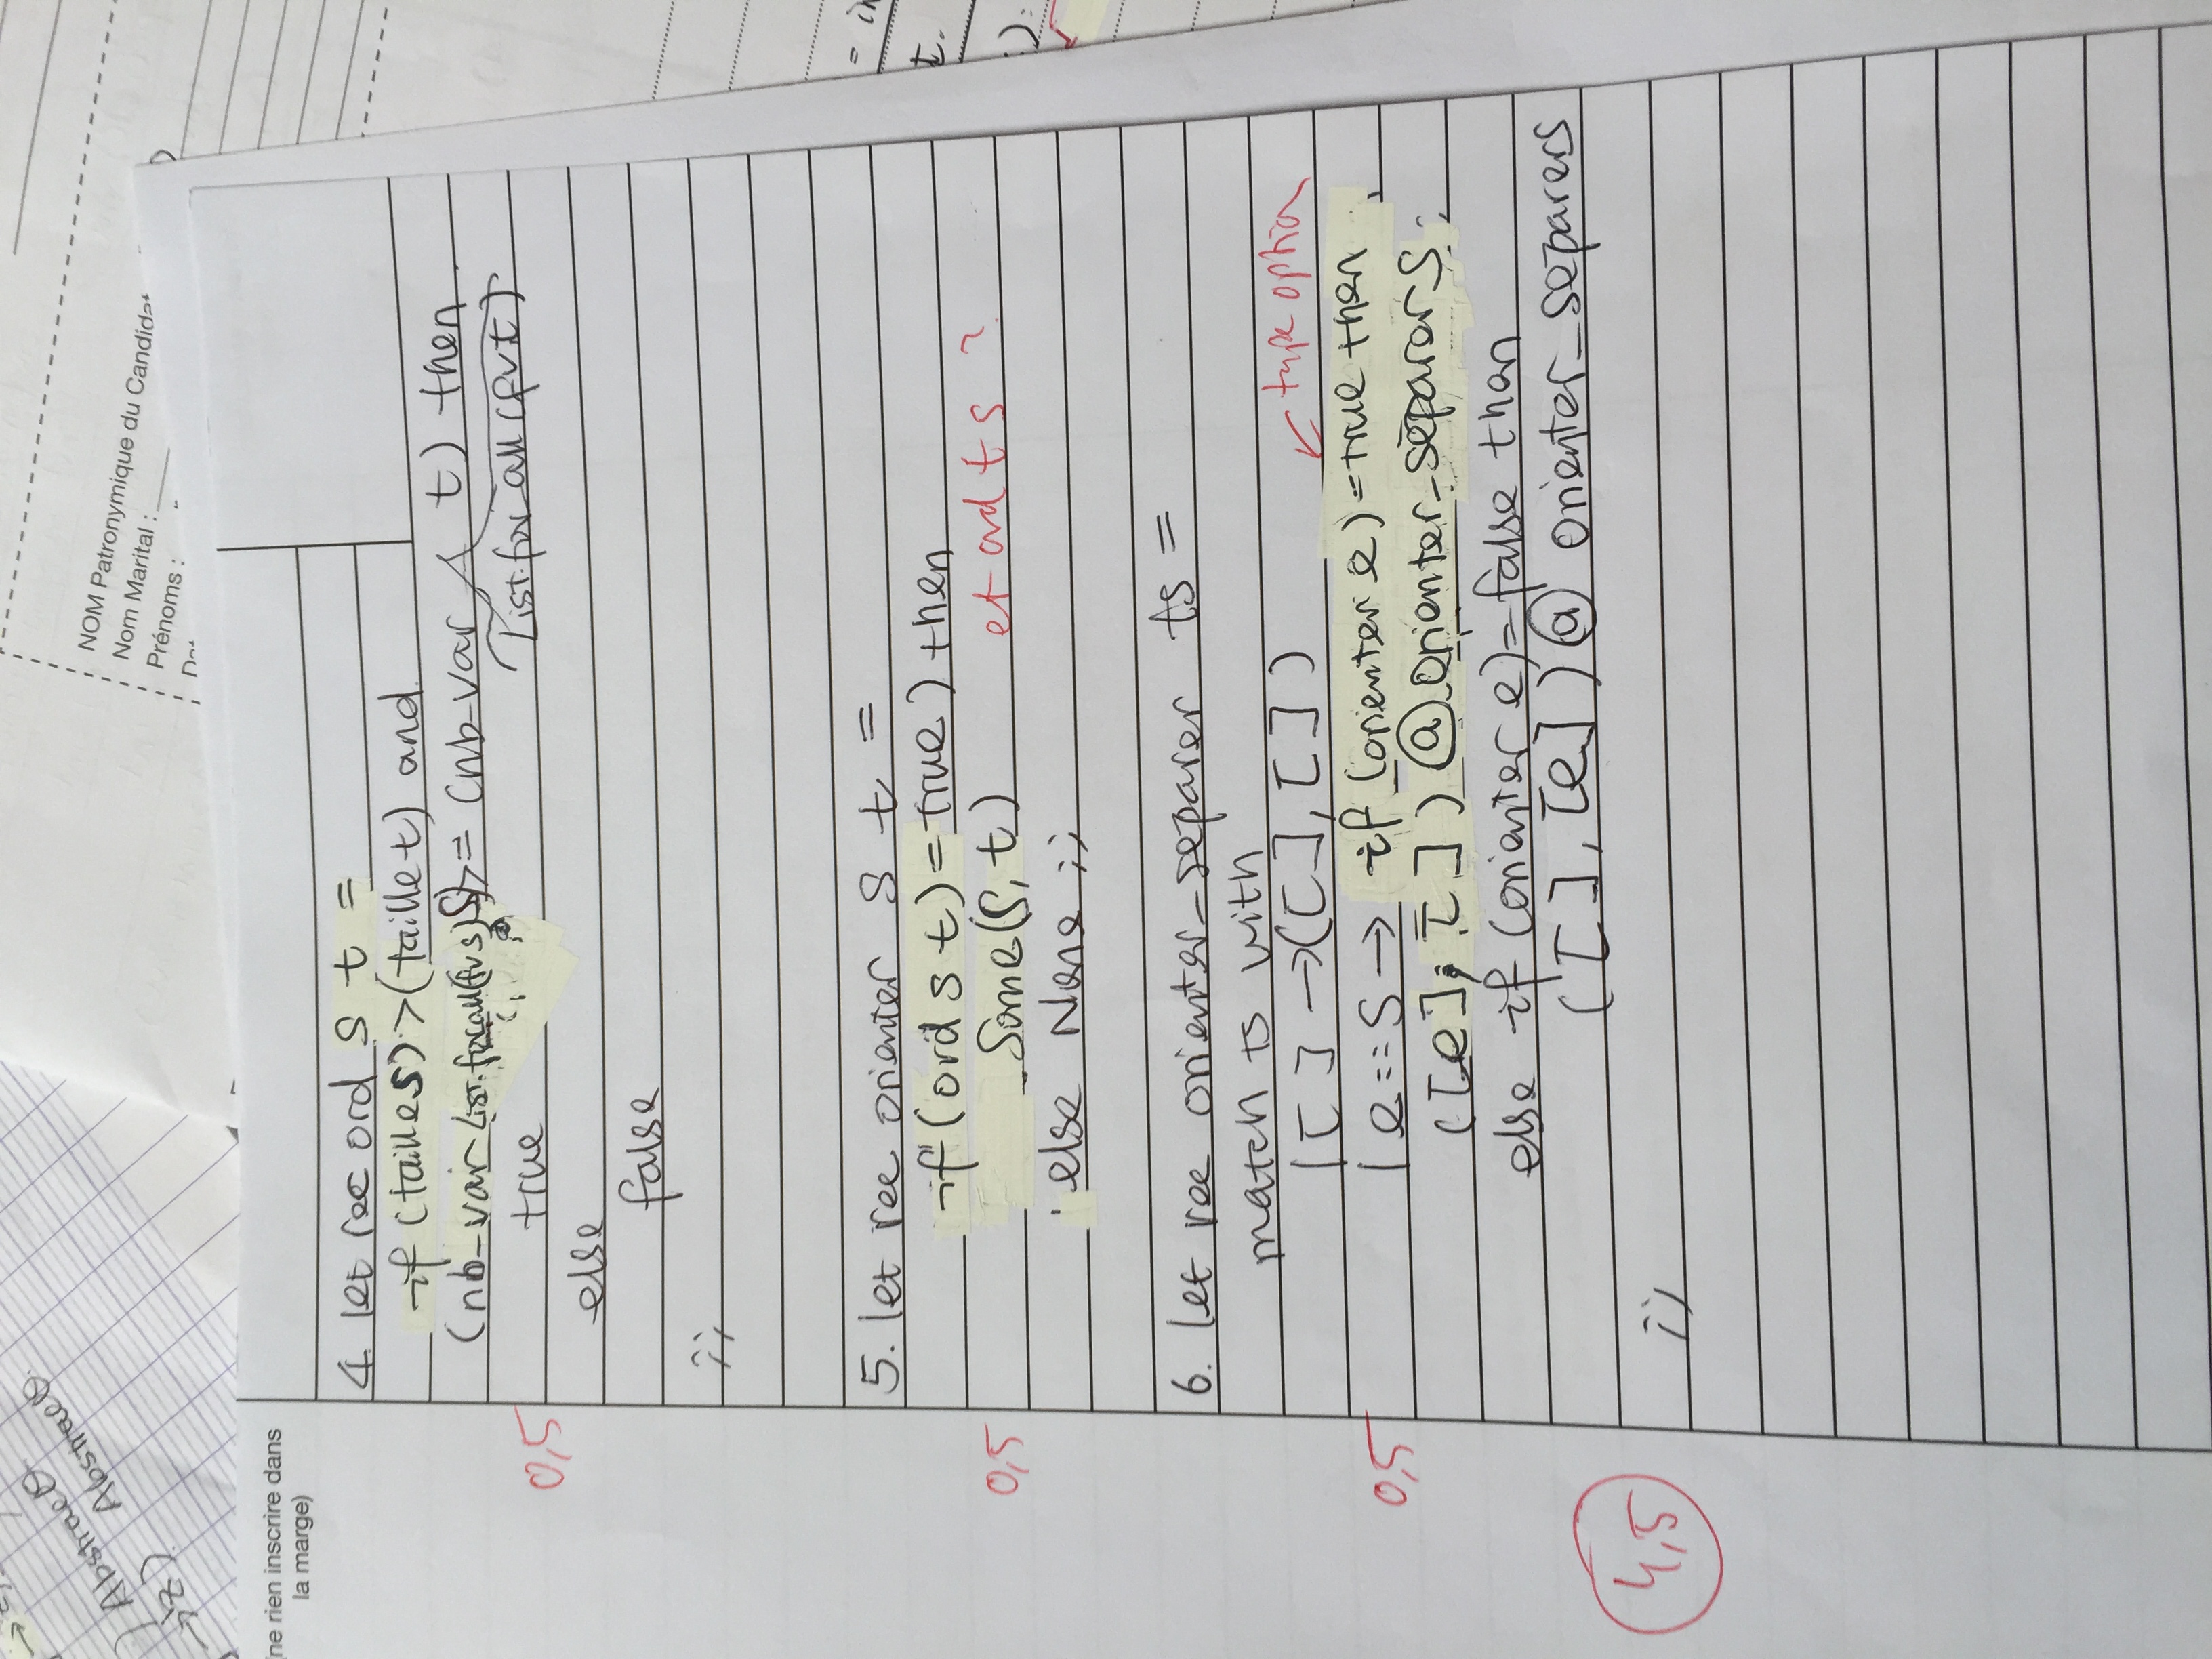 Abstrae
Abstrae
NOM Patronymique du Candidat
Nom Marital :
Prénoms :
(ne rien inscrire dans
la marge)
4. let rec ord s t =
if (taille s) > (taille t) and
(nb-var List.forall(fv s) s) >= (nb-var t) then
List.for_all (fv t)
true
0,5
else
false
;;
5. let rec orienter s t =
if (ord s t) = true ) then
Some(s, t) et ord t s ?
0,5
else None ;;
6. let rec orienter_separer ts =
match ts with
| [ ] → ([ ], [ ])
type option
| e::s → if (orienter e) = true then
0,5
([e], [ ]) @ orienter_separer s
else if (orienter e) = false then
([ ], [e]) @ orienter_separer s
4,5
;;